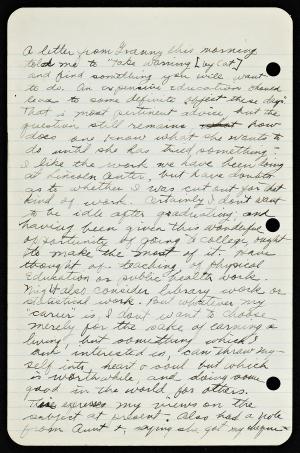 A letter from Granny this morning
told me to "take warning [by Cat.]
and find something you will want
to do. An expensive education should
lead to some definite object these days"
That is most pertinent advice, but the
question still remains how
does one know what she wants to
do until she has tried something -
I like the work we have been doing
at Lincoln Center, but have doubts
as to whether I was cut out for that
kind of work. Certainly I don't want
to be idle after graduating, and
having been given this wonderful
opportunity by going to college, ought
to make the most of it. Have
thought of teaching, of physical
education or public health work.
Might also consider library work or
statistical work. But whatever my
"career" is, I don't want to choose
merely for the sake of earning a
living, but something which I
am interested in, can throw my-
self into heart & soul but which
is worthwhile and doing some
good in the world for others.
This my views on the
subject at present. Also had a note
from Aunt , saying she got my